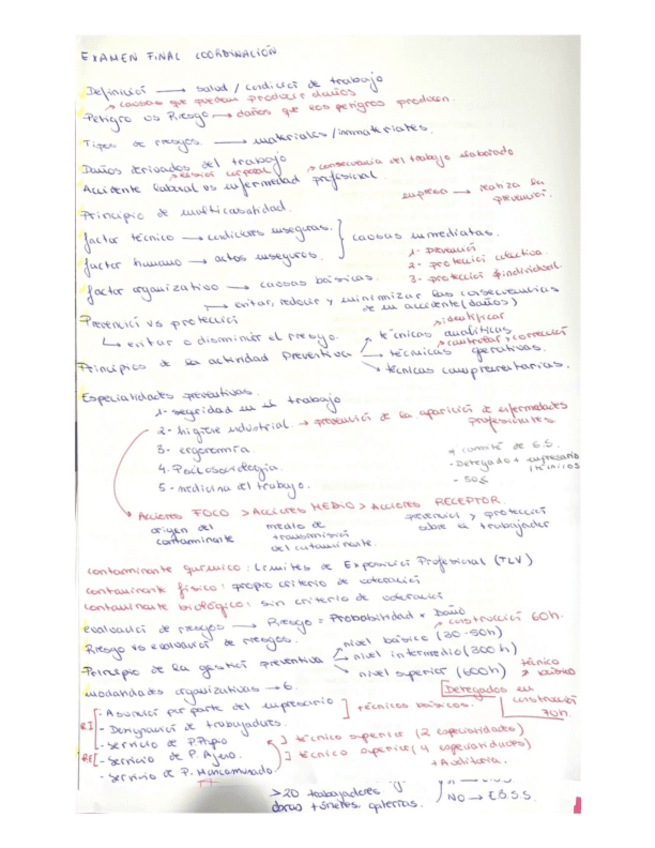 EXAMEN FINAL COORDINACIÓN
Definició → salud / condició de trabajo
→ causas que pueden producir daños
Peligro vs Riesgo → daños que los peligros producen.
Tipos de riesgos. → materiales / inmateriales.
Daños derivados del trabajo
→ lesión corporal → consecuencia del trabajo elaborado
Accidente laboral vs enfermedad profesional.
empresa → realiza la prevenció.
Principio de multicausalidad.
factor técnico → condiciones inseguras.
factor humano → actos inseguros. } causas inmediatas.
1- prevenció
2- protecció colectiva.
3- protecció individual.
factor organizativo → causas básicas.
→ evitar, reducir y minimizar las consecuencias de un accidente (daños)
Prevenció vs protecció
↳ evitar o disminuir el riesgo.
→ identificar
técnicas analíticas
→ controlar y correcció
Principios de la actividad Preventiva → técnicas operativas.
técnicas complementarias.
Especialidades preventivas.
1- seguridad en el trabajo
2- higiene industrial. → prevenció de la aparició de enfermedades profesionales.
3- ergonomía.
4- Psicosociología.
5- medicina del trabajo.
+ comité de S.S.
- Delegado + empresario
- 50%
Acciones FOCO > Acciones MEDIO > Acciones RECEPTOR.
origen del contaminante
medio de transmisió del contaminante.
prevenció y protecció sobre el trabajador
contaminante químico: Límites de Exposició Profesional (TLV)
contaminante físico: propio criterio de valoració
contaminante biológico: sin criterio de valoració
evaluació de riesgos → Riesgo = Probabilidad x Daño
→ construcció 60h.
Riesgo vs evaluació de riesgos.
nivel básico (30-50h)
Principio de la gestió preventiva → nivel intermedio (300h)
nivel superior (600h)
técnico básico
modalidades organizativas → 6.
Delegados en construcció 70h.
RI [ - Asunció por parte del empresario ] técnicos básicos.
- Designació de trabajadores.
- Servicio de P. Propio ] técnico superior (2 especialidades)
RE [ - Servicio de P. Ajeno. ] técnico superior (4 especialidades)
+ Auditoria.
- Servicio de P. Mancomunado.
>20 trabajadores
túneles, galerías.
NO → E.B.S.S.